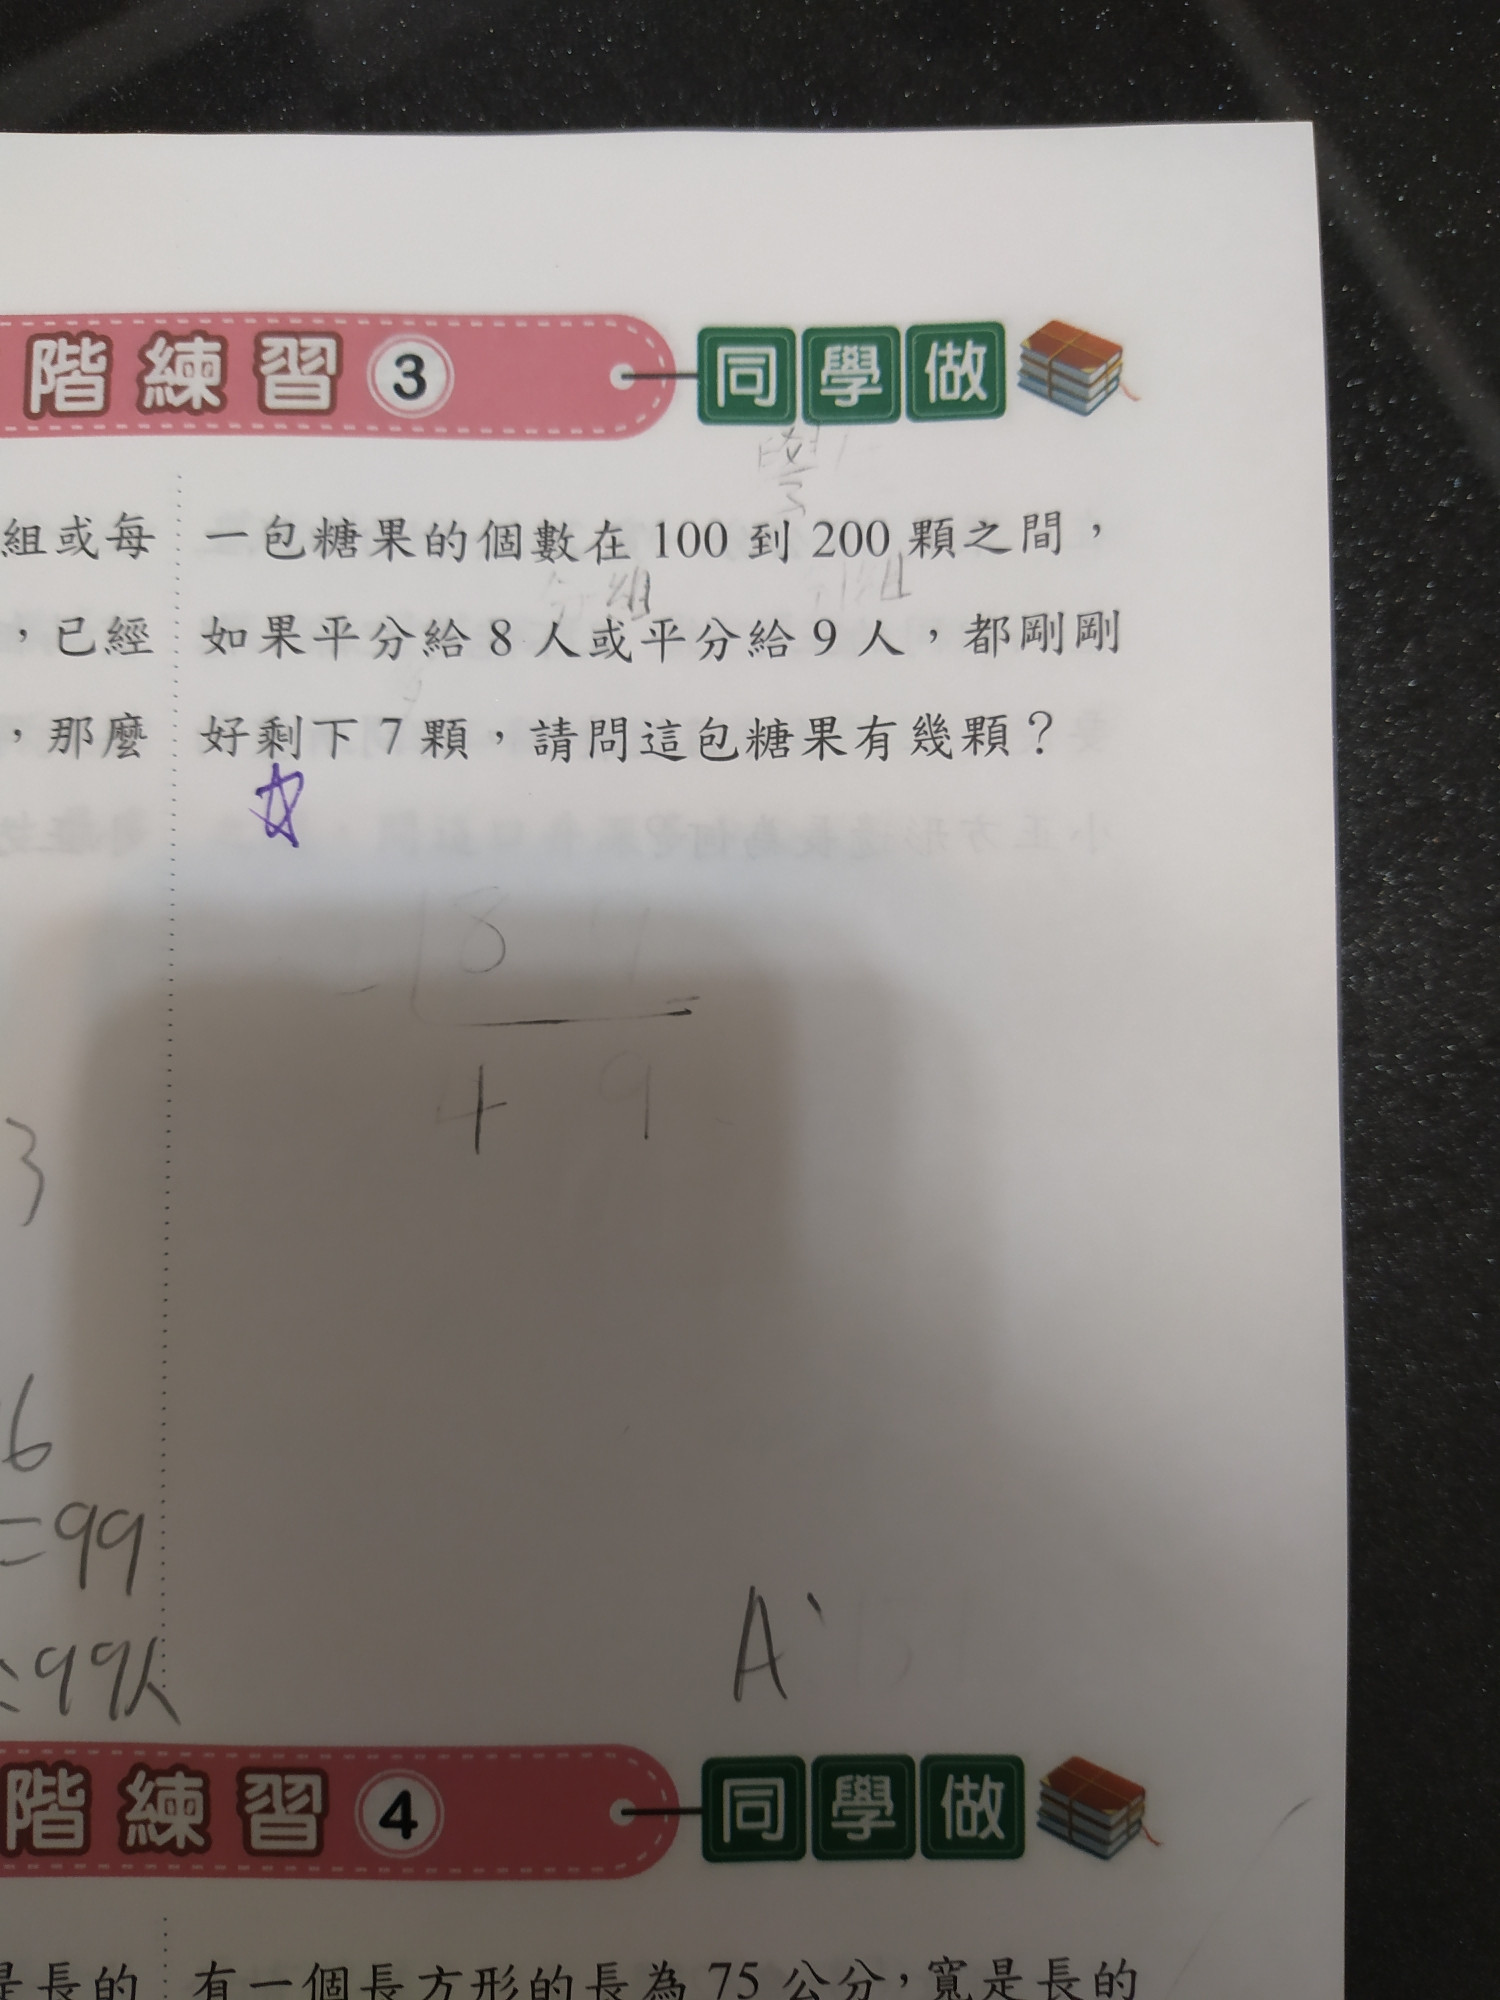 階練習 3 同學做
學
組或每
，已經
，那麼
一包糖果的個數在 100 到 200 顆之間，
分組 分組
如果平分給 8 人或平分給 9 人，都剛剛
好剩下 7 顆，請問這包糖果有幾顆？
8 9
4 9
3
6
=99
99人
A、
階練習 4 同學做
是長的
有一個長方形的長為 75 公分，寬是長的